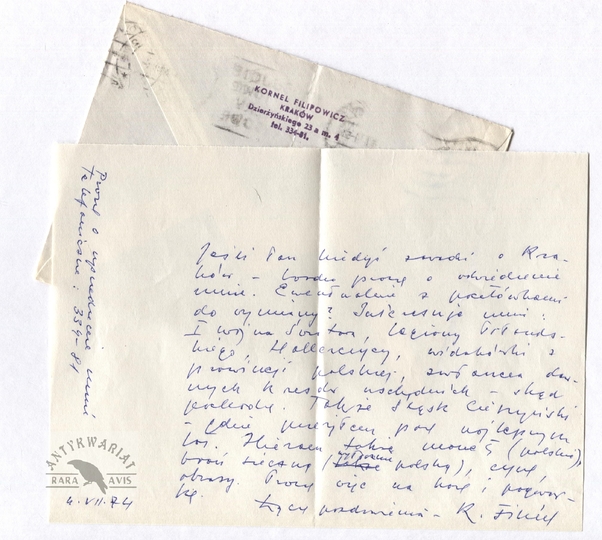 KORNEL FILIPOWICZ
KRAKÓW
Dzierżyńskiego 23 a m. 4
tel. 334-81.
Proszę o uprzedzenie mnie
telefoniczne: 334-81
Jeśli Pan kiedyś zawadzi o Kra-
ków - bardzo proszę o odwiedzenie
mnie. Ewentualnie z pocztówkami
do wymiany. Interesują mnie:
I wojna świat., Legiony Piłsuds-
kiego, Hallerczycy, widokówki z
prowincji polskiej, zwłaszcza daw-
nych kresów wschodnich - skąd
pochodzę. Także Śląsk Cieszyński
- gdzie przeżyłem parę najlepszych
lat. Zbieram także monety (polskie),
broń sieczną (polską), cynę,
obrazy. Proszę więc na kawę i pogawęd-
kę.
Łączę pozdrowienia - K. Filip
ANTYKWARIAT
RARA AVIS
4. VII. 74